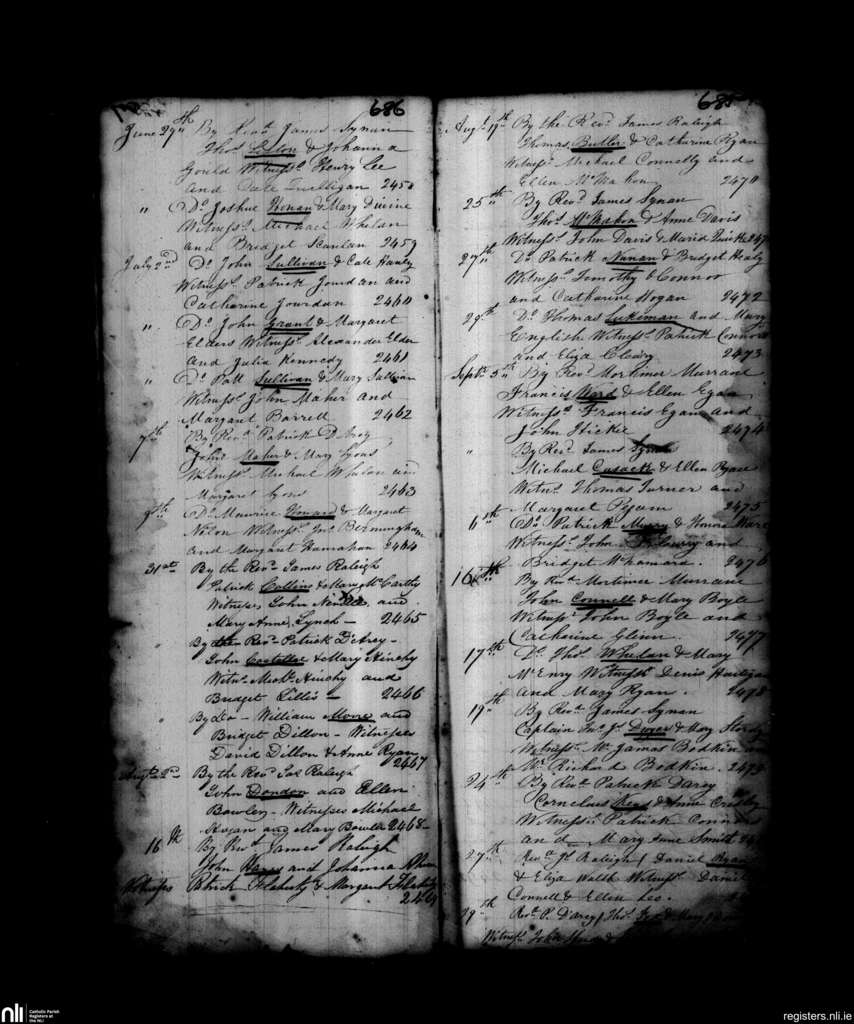 686
June 29th By Revd James Synan
Thos & Johanna
Gould Witnesss Henry Lee
and Cate Quilligan 2458
" Do Joshua Honan & Mary Divine
Witnesss Michael Whelan
and Bridget Scanlan 2459
July 2nd Do John Sullivan & Cate Hanly
Witnesss Patrick Jourdan and
Catharine Jourdan 2460
" Do John Grant & Margaret
Elders Witnesss Alexander Elder
and Julia Kennedy 2461
" Do Patt Sullivan & Mary Sullivan
Witnesss John Maher and
Margaret Barrett 2462
7th By Revd Patrick D'Arcy
John Maher & Mary Lyons
Witnesss Michael Whelan and
Margaret Lyons 2463
9th Do Maurice Howard & Margaret
Witnesss Jno Bermingham
and Margaret Hanrahan 2464
31st By the Revd James Raleigh
Patrick Collins & Mary McCarthy
Witnesses John and
Mary Anne Lynch – 2465
" By the Revd Patrick D'Arcy –
John Costelloe & Mary Hinchy
Witns Michl Hinchy and
Bridget Lillis – 2466
" By Do – William Mone and
Bridget Dillon – Witnesses
David Dillon & Anne Ryan
2467
Augt 2nd By the Revd Jas Raleigh
John Dondon and Ellen
Bowler – Witnesses Michael
Hogan and Mary Bowler 2468 –
16th By Revd James Raleigh
John Hayes and Johanna
Witnesses Patrick Flaherty & Margaret Flaherty
2469
685
Augt 19th By the Revd James Raleigh
Thomas Butler & Catharine Ryan
Witnesss Michael Connelly and
Ellen McMahon 2470
25th By Revd James Synan
Thos McMahon & Anne Davis
Witnesss John Davis & Maria 247
27th Do Patrick Nunan & Bridget Healy
Witnesss Timothy O'Connor
and Catharine Hogan 2472
29th Do Thomas and Mary
English Witnesss Patrick Connors
and Eliza Cleary 2473
Septr 5th By Revd Mortimer Murrane
Francis Ward & Ellen Egan
Witnesss Francis Egan and
John Hickie 2474
" By Revd James Synan
Michael Cusack & Ellen Ryan
Witns Thomas Turner and
Margaret 2475
6th Do Patrick & Honora
Witnesss John and
Bridget McNamara. 2476
16th By Revd Mortimer Murrane
John Connell & Mary Boyle
Witnesss John Boyle and
Catherine Glinn. 2477
17th Do Thos Whelan & Mary
McEnry Witnesss Denis
and Mary Ryan. 2478
19th By Revd James Synan
Captain Jno Js Dwyer & May
Witnesss Mr James Bodkin an
Mr Richard Bodkin. 2479
24th By Revd Patrick Darcy
Cornelius & Anne
Witnesss Patrick Connors
and Mary Anne Smith
27th Revd Js Raleigh / Daniel Ryan
& Eliza Walsh Witnesss Daniel
Connell & Ellen Leo.
29th Revd P. D'arcy / Thos & Mary
Witnesss John &
nli
Catholic Parish
Registers at
the NLI
registers.nli.ie